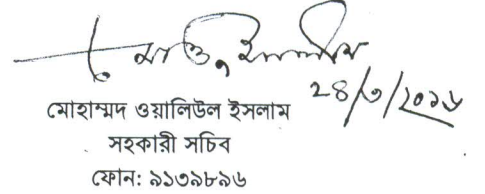 ২৪/৩/২০১৬
মোহাম্মদ ওয়ালিউল ইসলাম
সহকারী সচিব
ফোন: ৯১৩৯৮৯৬